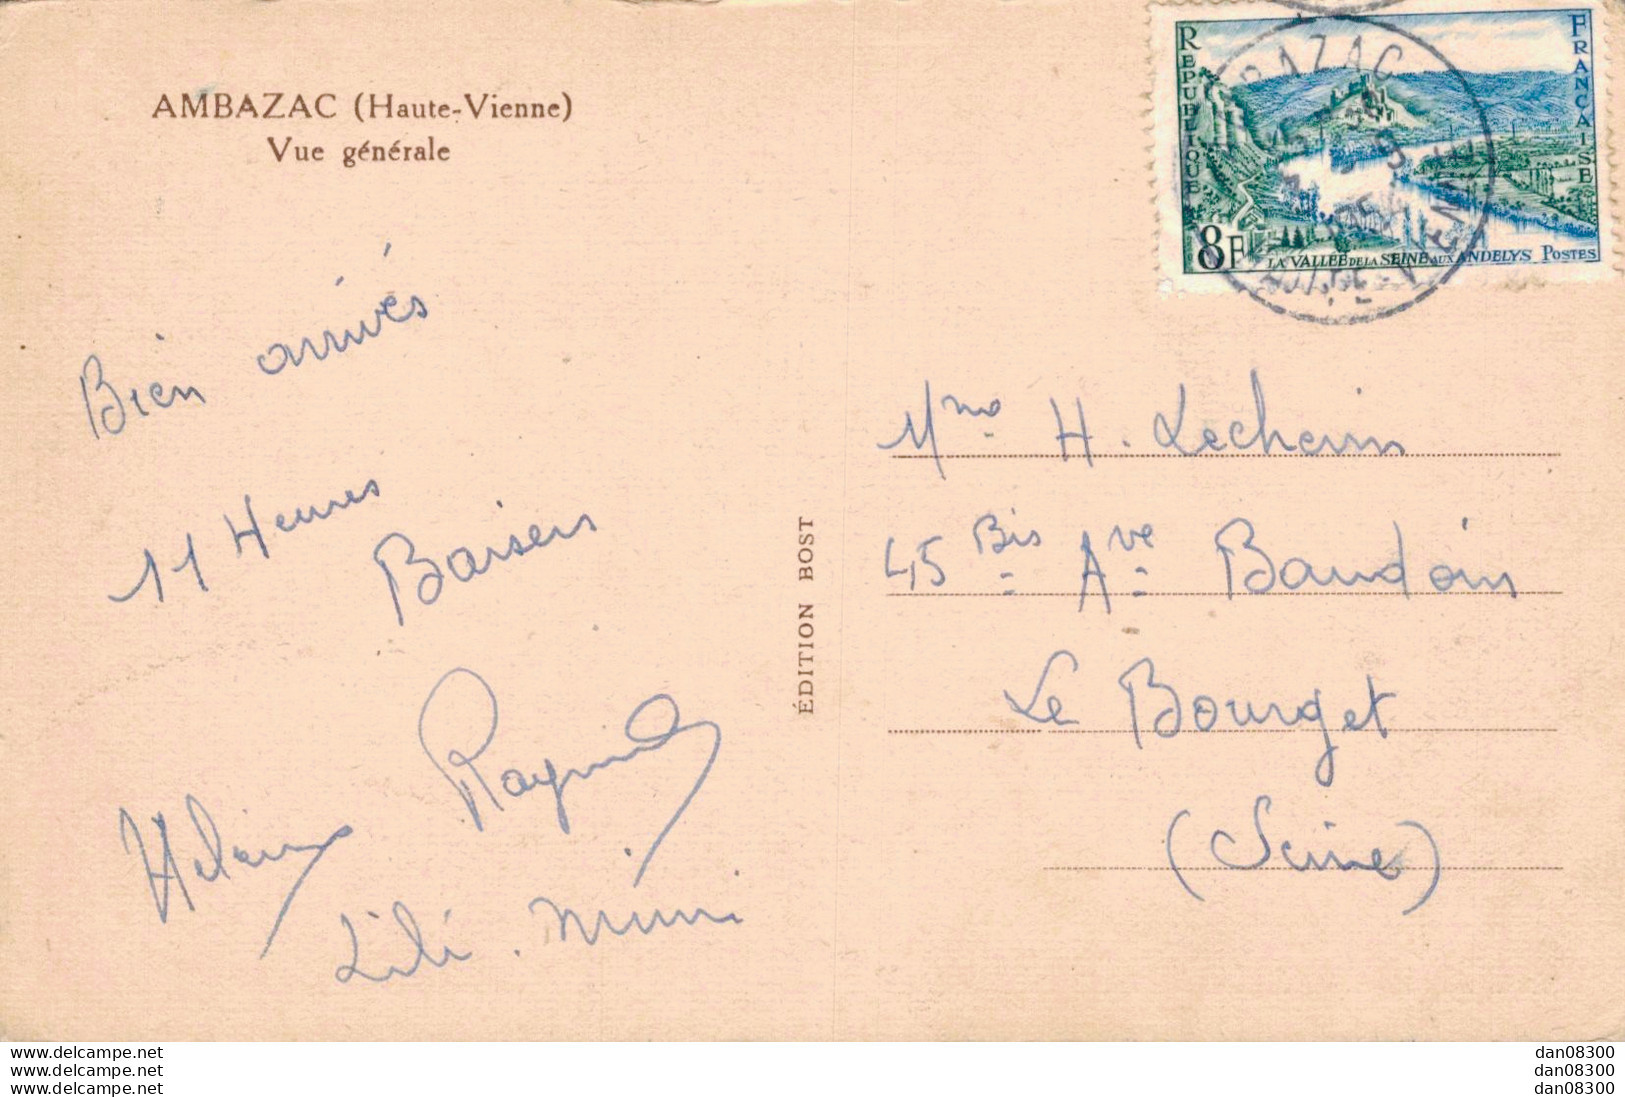 AMBAZAC (Haute-Vienne)
Vue générale
Bien arrivés
11 Heures
Baisers
Raymond
Lili. Mimi
ÉDITION BOST
REPUBLIQUE FRANCAISE
8F
LA VALLEE DE LA SEINE AUX ANDELYS POSTES
BAZAC
VIENNE
Mme H. Lechein
45 Bis Ave Baudoin
Le Bourget
(Seine)
www.delcampe.net
www.delcampe.net
www.delcampe.net
dan08300
dan08300
dan08300